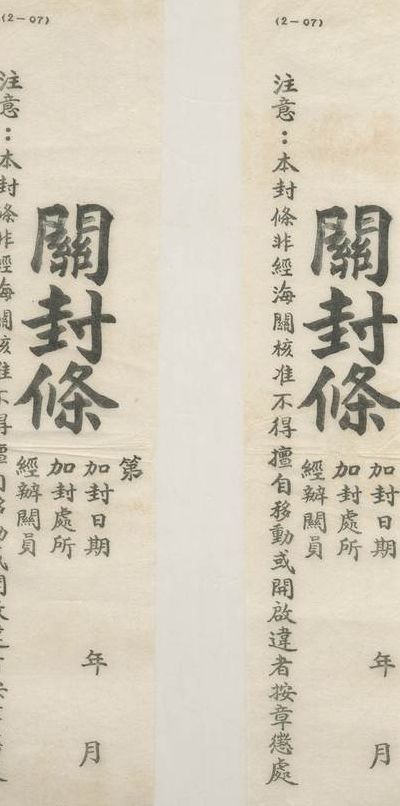 (2-07)
第
加封日期 年 月
加封處所
經辦關員
關封條
注意：本封條非經海關核准不得擅自移動
(2-07)
加封日期 年 月
加封處所
經辦關員
關封條
注意：本封條非經海關核准不得擅自移動或開啟違者按章懲處